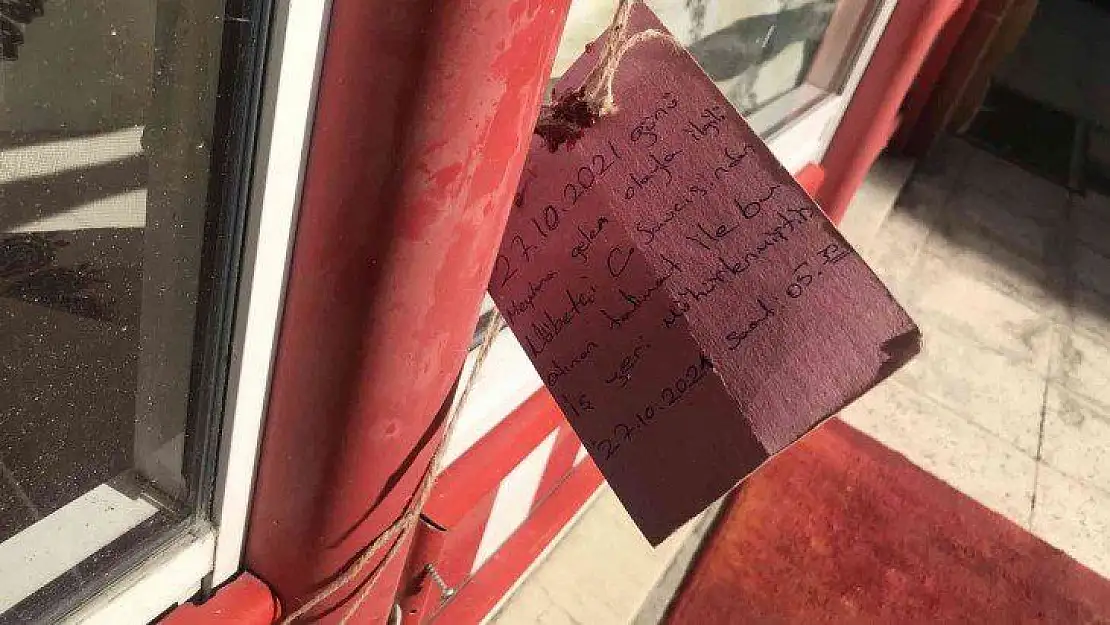 27.10.2021 günü
Meydana gelen olayla ilgili
Nöbetçi C Savcısından
alınan talimat ile bu
İş yeri Mühürlenmiştir
27.10.2021 saat: 05.30